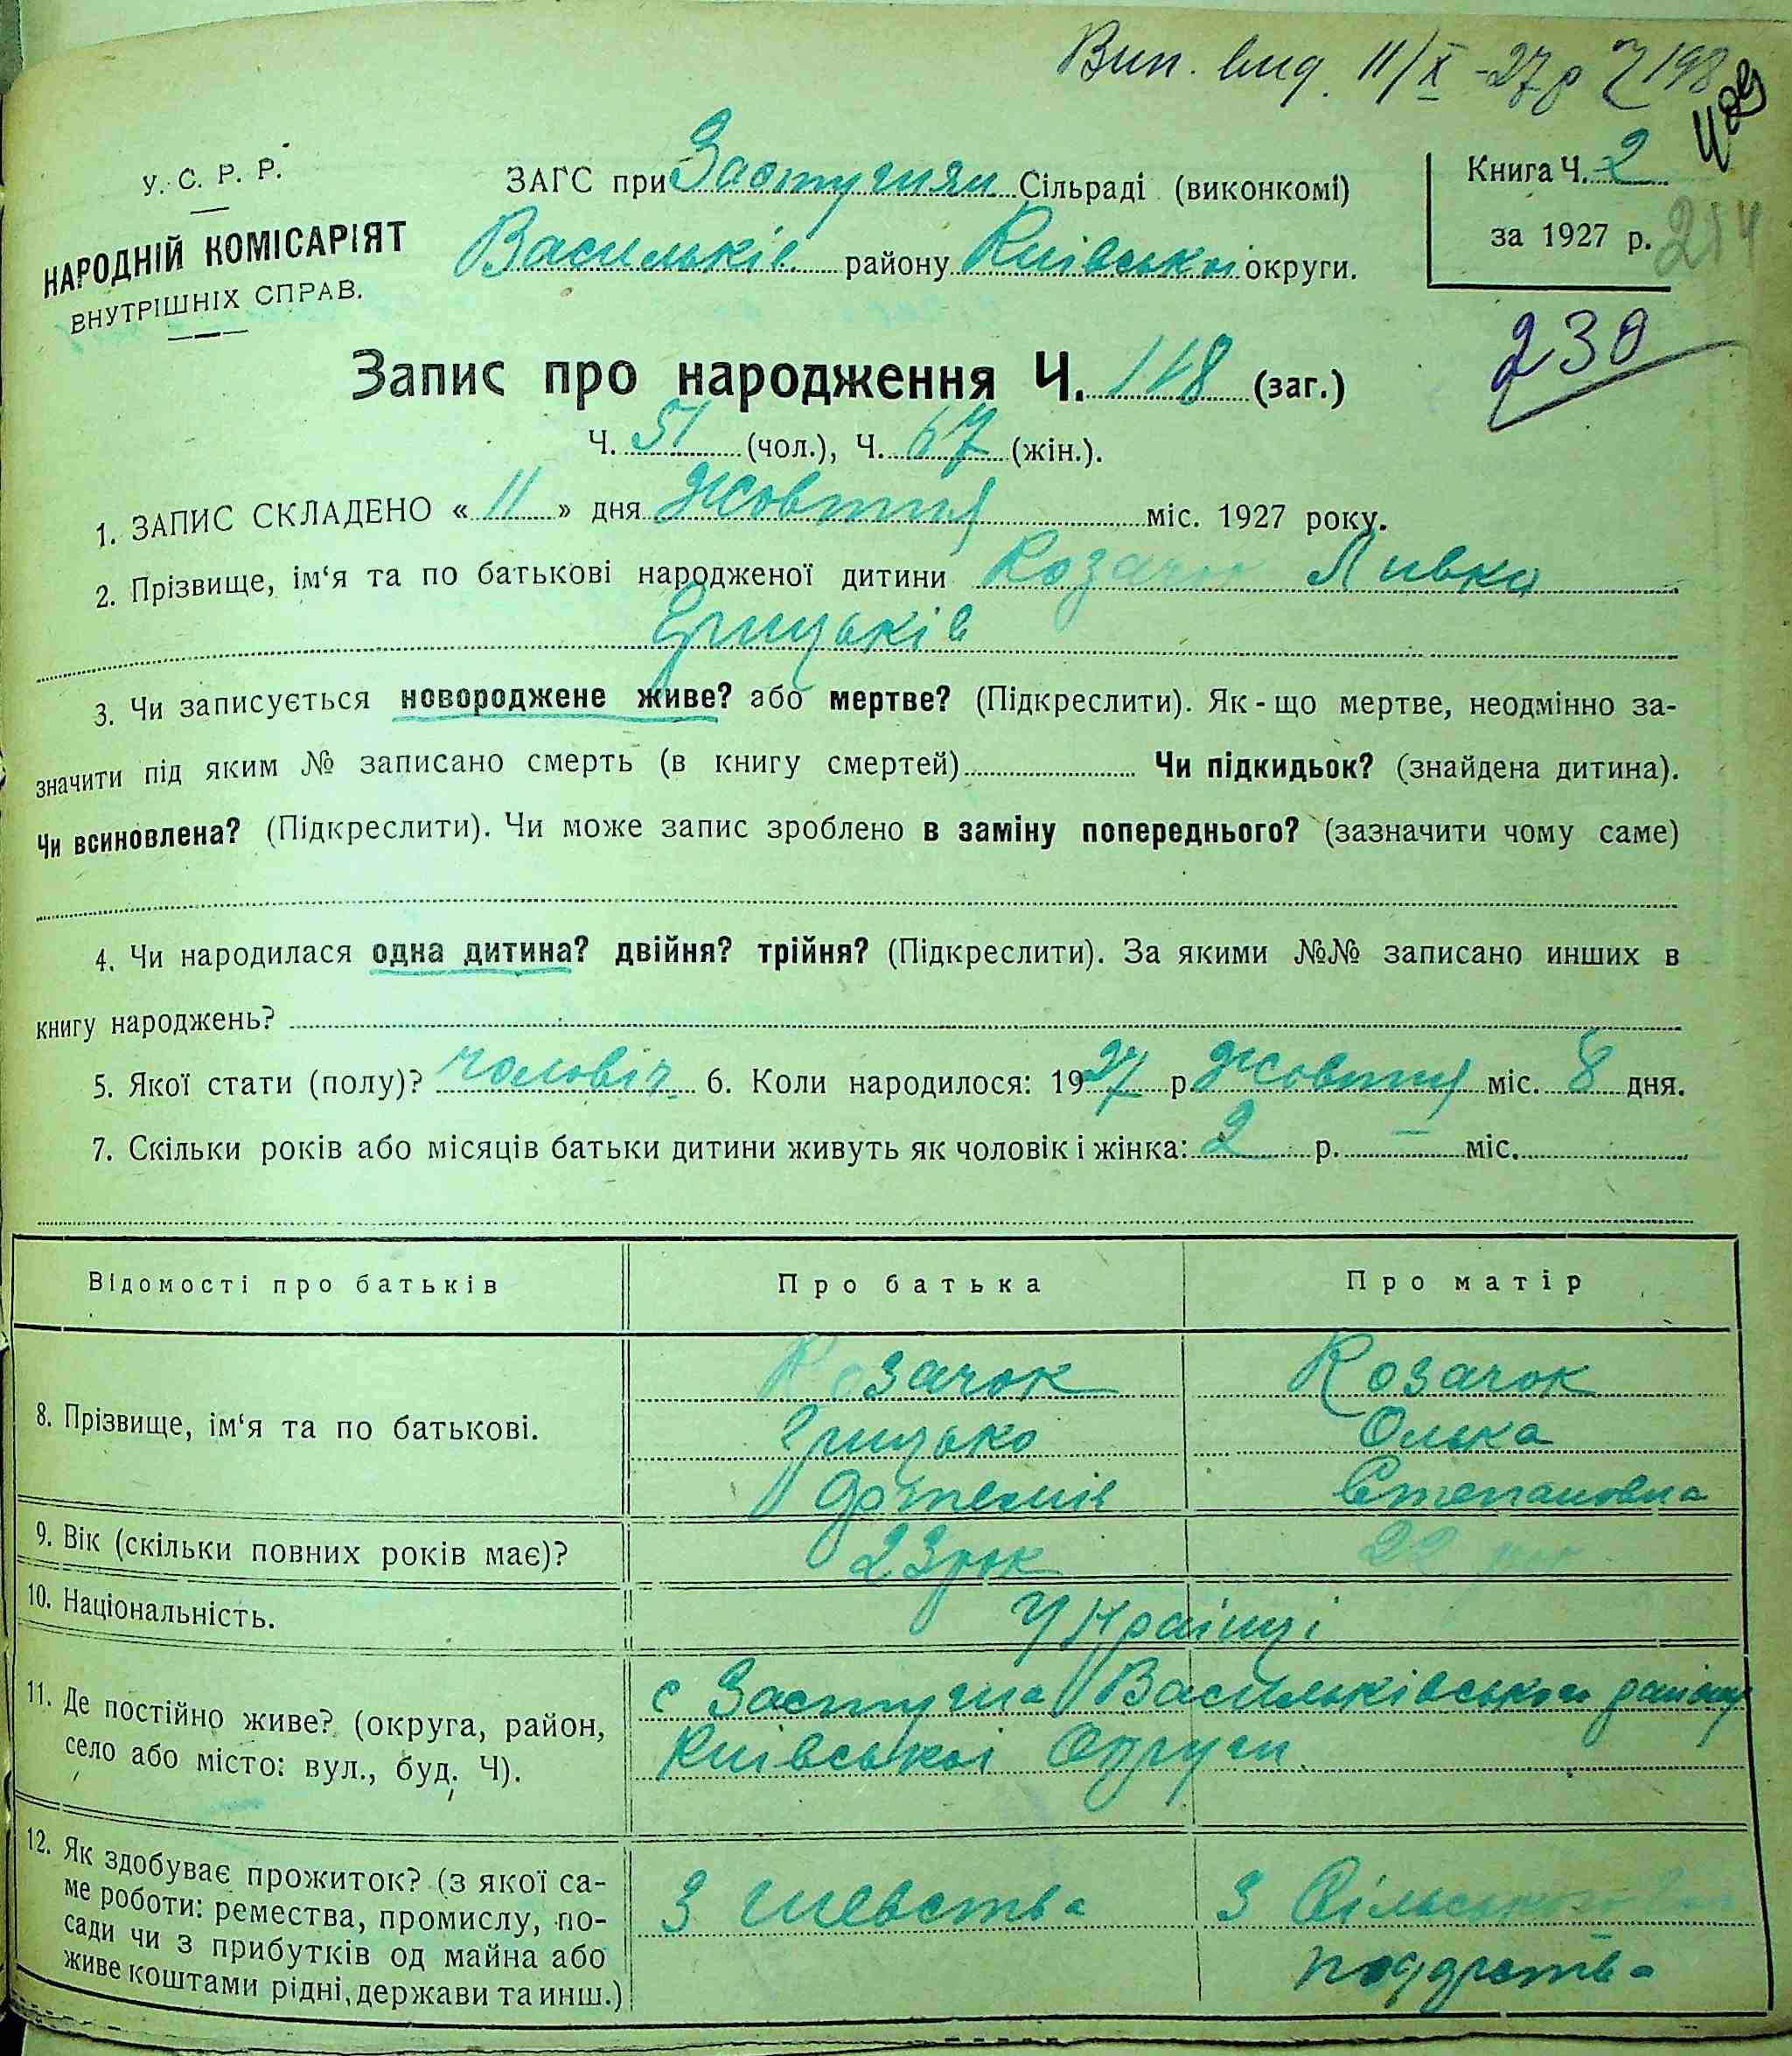 Вип. вид. 11/X-27р
У. С. Р. Р.
НАРОДНІЙ КОМІСАРІЯТ
ВНУТРІШНІХ СПРАВ.
ЗАГС при Застугнян Сільраді (виконкомі)
Васильків району Київської округи.
Книга Ч. 2
за 1927 р.
214
230
Запис про народження Ч. 118 (заг.)
Ч. 51 (чол.), Ч. 67 (жін.).
1. ЗАПИС СКЛАДЕНО « 11 » дня Жовтня міс. 1927 року.
2. Прізвище, ім‘я та по батькові народженої дитини Козачок Ливко
Грицьків
3. Чи записується новороджене живе? або мертве? (Підкреслити). Як-що мертве, неодмінно за-
значити під яким № записано смерть (в книгу смертей) Чи підкидьок? (знайдена дитина).
Чи всиновлена? (Підкреслити). Чи може запис зроблено в заміну попереднього? (зазначити чому саме)
4. Чи народилася одна дитина? двійня? трійня? (Підкреслити). За якими №№ записано инших в
книгу народжень?
5. Якої стати (полу)? чоловіч. 6. Коли народилося: 1927 р. Жовтня міс. 8 дня.
7. Скільки років або місяців батьки дитини живуть як чоловік і жінка: 2 р. — міс.
Відомості про батьків Про батька Про матір
8. Прізвище, ім‘я та по батькові.
Козачок Козачок
Грицько Олька
Артемів Степановна
9. Вік (скільки повних років має)? 23 рок 22 рок
10. Національність. Українці
11. Де постійно живе? (округа, район,
село або місто: вул., буд. Ч).
с Застугна Васильківського району
Київської Округи
12. Як здобуває прожиток? (з якої са-
ме роботи: ремества, промислу, по-
сади чи з прибутків од майна або
живе коштами рідні, держави та инш.)
З шевства З Сільського